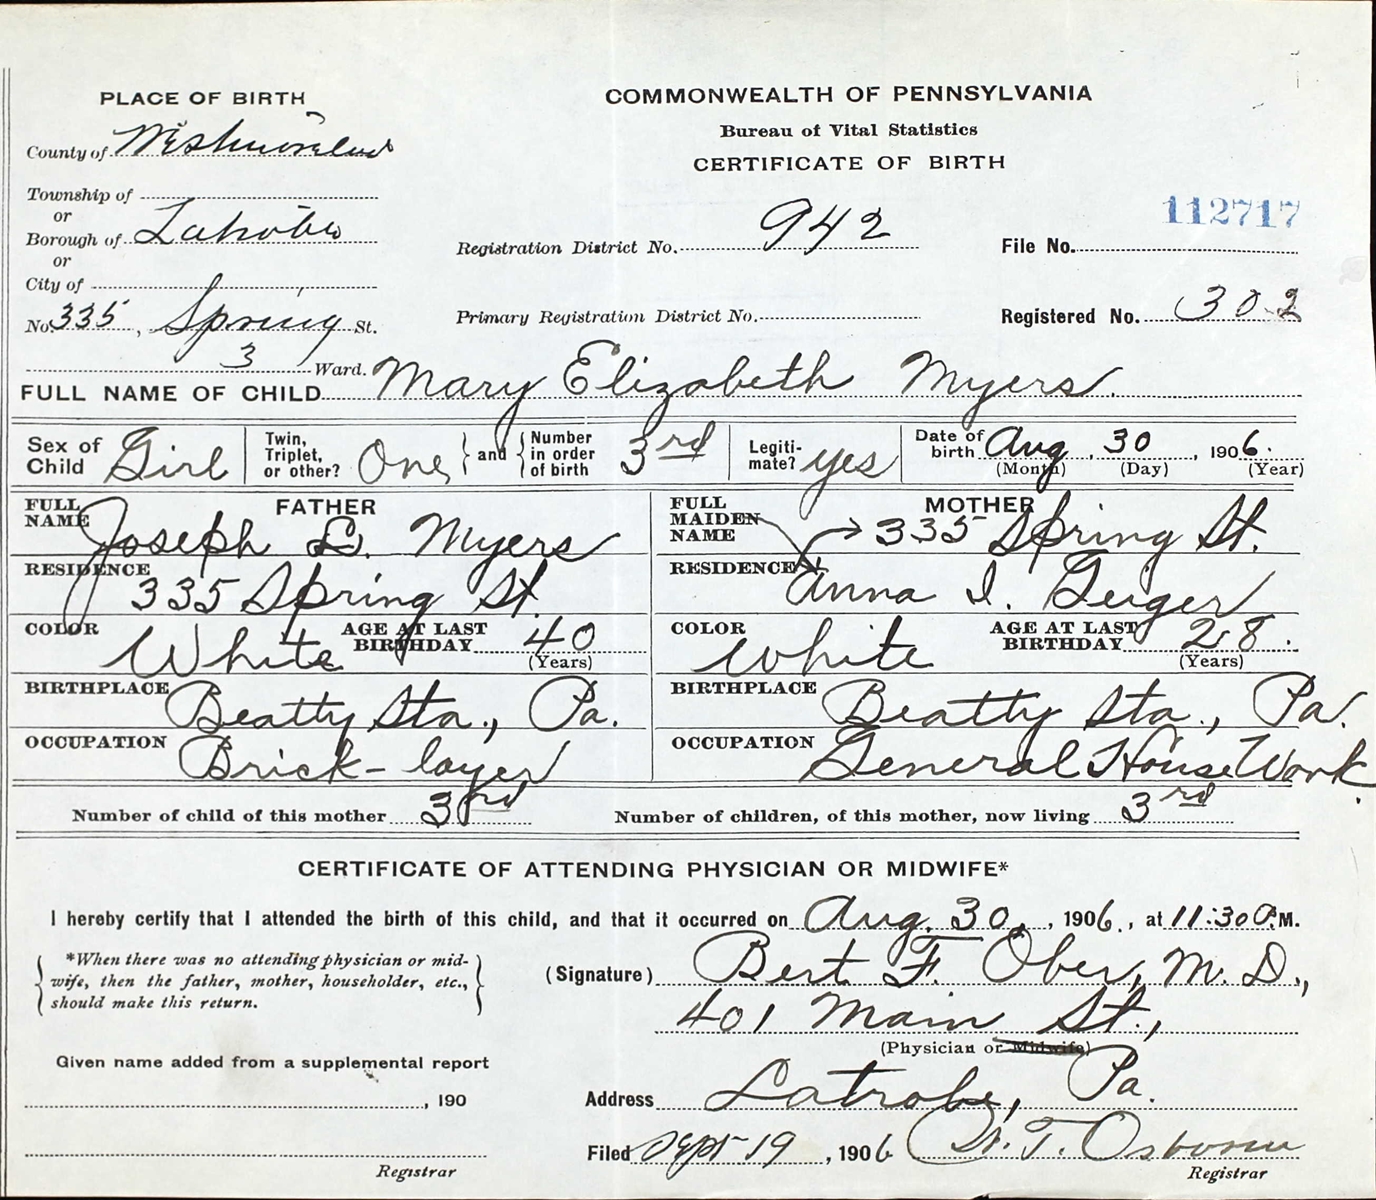 PLACE OF BIRTH
County of Westmoreland
Township of
or
Borough of Latrobe
or
City of
No. 335, Spring St.
3 Ward.
COMMONWEALTH OF PENNSYLVANIA
Bureau of Vital Statistics
CERTIFICATE OF BIRTH
112717
Registration District No. 942
File No.
Primary Registration District No.
Registered No. 302
FULL NAME OF CHILD Mary Elizabeth Myers.
Sex of Child Girl
Twin, Triplet, or other? One
and Number in order of birth 3rd
Legitimate? yes
Date of birth Aug, 30, 1906.
(Month) (Day) (Year)
FATHER
FULL NAME Joseph L. Myers
RESIDENCE 335 Spring St.
COLOR White AGE AT LAST BIRTHDAY 40
(Years)
BIRTHPLACE Beatty Sta., Pa.
OCCUPATION Brick-layer
MOTHER
FULL MAIDEN NAME 335 Spring St.
RESIDENCE Anna I. Geiger
COLOR White AGE AT LAST BIRTHDAY 28.
(Years)
BIRTHPLACE Beatty Sta., Pa.
OCCUPATION General House Work.
Number of child of this mother 3rd Number of children, of this mother, now living 3rd
CERTIFICATE OF ATTENDING PHYSICIAN OR MIDWIFE*
I hereby certify that I attended the birth of this child, and that it occurred on Aug. 30, 1906., at 11:30 A.M.
*When there was no attending physician or mid-
wife, then the father, mother, householder, etc.,
should make this return.
(Signature) Bert F. Ober, M. D.,
401 Main St.,
(Physician or Midwife)
Given name added from a supplemental report
, 190
Registrar
Address Latrobe, Pa.
Filed Sept 19, 1906 W. T. Osborne
Registrar